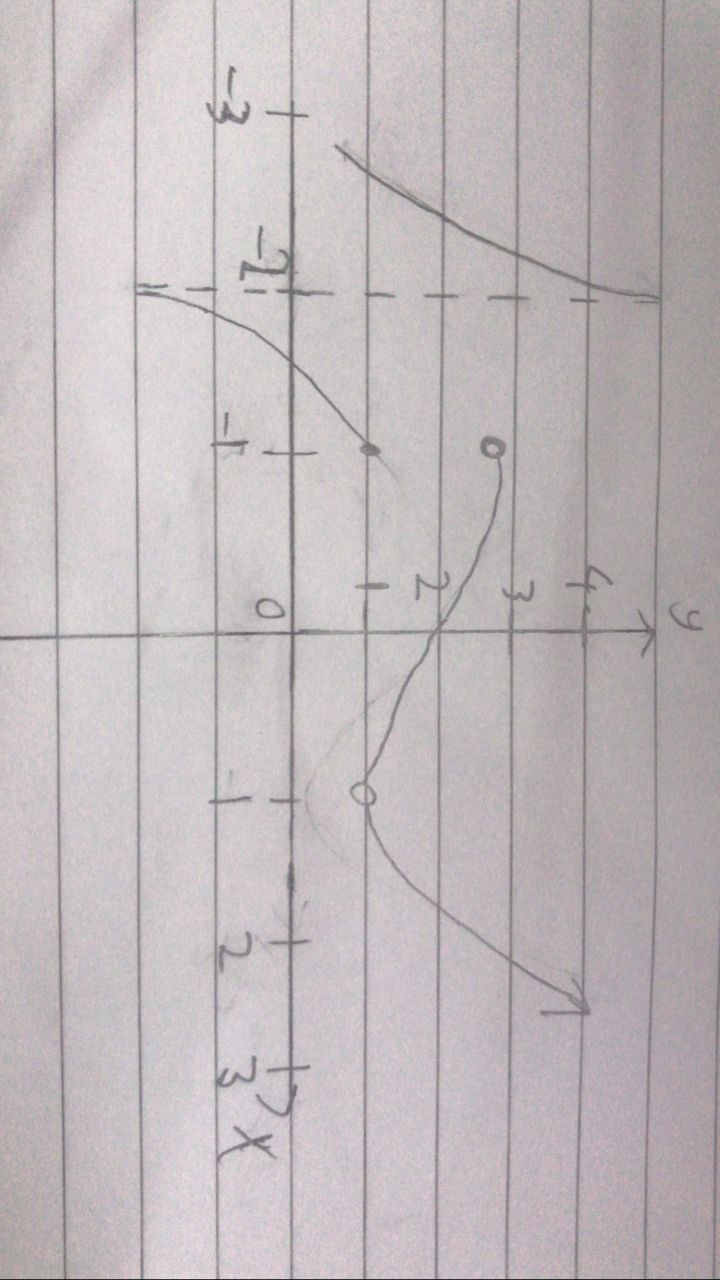 y
4
3
2
1
-3 -2 -1 0 1 2 3 X